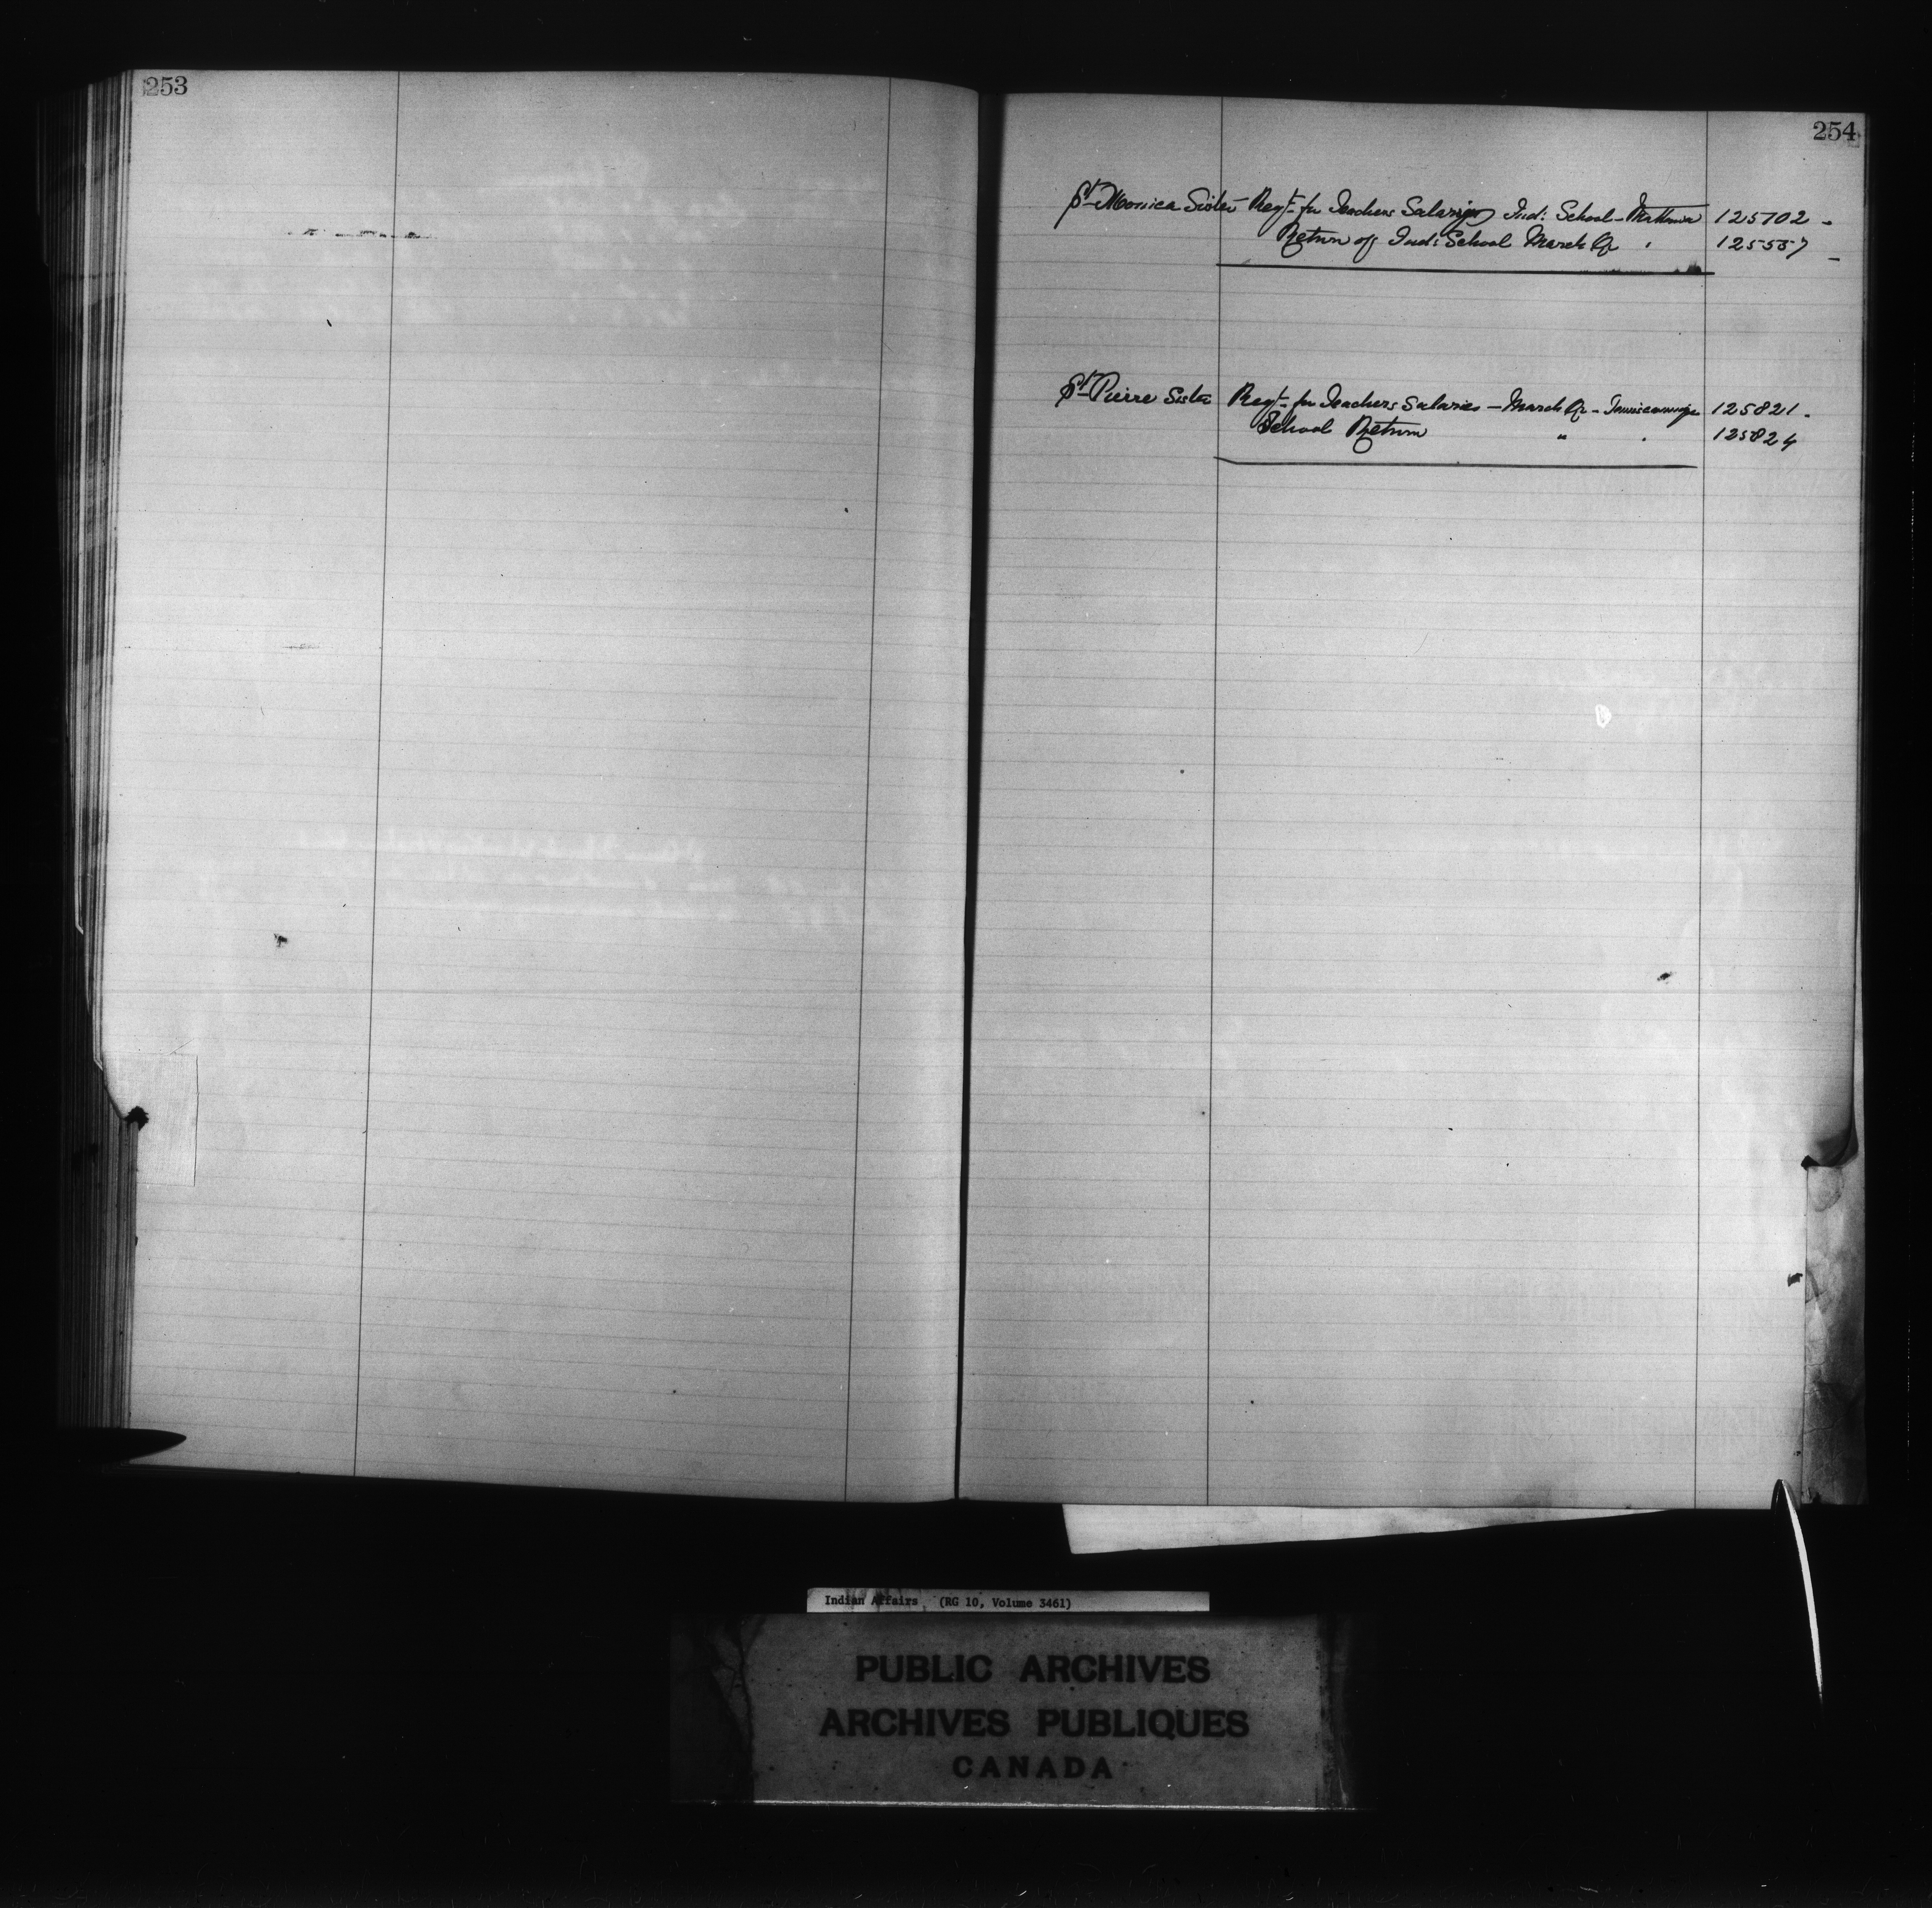 253
254
St Monica Sister Reqt for Teachers Salaries Ind: School - Mattawa 125702 -
Return of Ind: School March Qr " 125557 -
St Pierre Sister Reqt for Teachers Salaries - March Qr - Temiscamingue 125821 -
School Return " " 125824
Indian Affairs (RG 10, Volume 3461)
PUBLIC ARCHIVES
ARCHIVES PUBLIQUES
CANADA